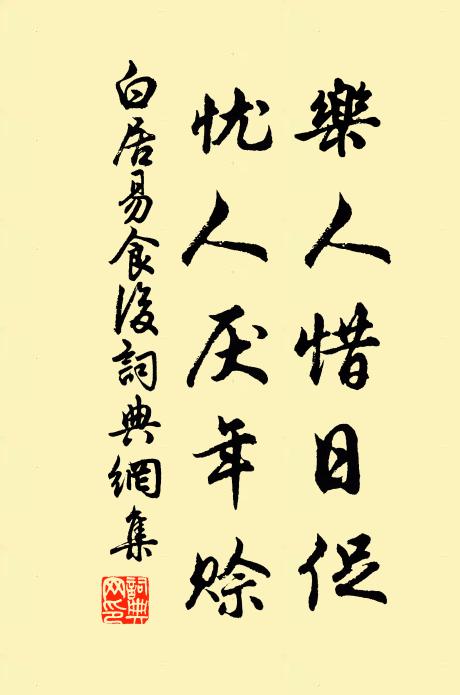 樂人惜日促
忧人厌年赊
白居易食後詞典網集
詞典
网印